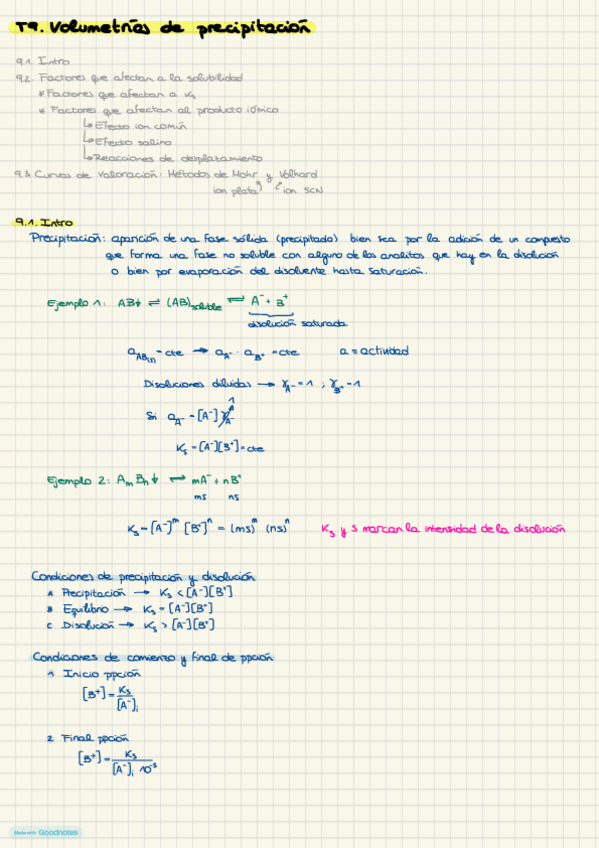 T9. Volumetrías de precipitación
9.1. Intro
9.2. Factores que afectan a la solubilidad
* Factores que afectan a Ks
* Factores que afectan al producto iónico
↳ Efecto ion común
↳ Efecto salino
↳ Reacciones de desplazamiento
9.3 Curvas de valoración: Métodos de Mohr y Volhard
ion plata ion SCN
9.1. Intro
Precipitación: aparición de una fase sólida (precipitado) bien sea por la adición de un compuesto
que forma una fase no soluble con alguno de los analitos que hay en la disolución
o bien por evaporación del disolvente hasta saturación.
Ejemplo 1: AB↓ ⇌ (AB)soluble ⇌ A⁻ + B⁺
disolución saturada
a AB(n) = cte → a A⁻ · a B⁺ = cte a = actividad
Disoluciones diluidas → γA⁻ = 1 ; γB⁺ = 1
1
Si aA⁻ = [A⁻] γA⁻
Ks = [A⁻][B⁺] = cte
Ejemplo 2: AmBn↓ ⇌ mA⁻ + nB⁺
ms ns
Ks = [A⁻]ᵐ [B⁺]ⁿ = (ms)ᵐ (ns)ⁿ Ks y s marcan la intensidad de la disolución
Condiciones de precipitación y disolución
A Precipitación → Ks < [A⁻][B⁺]
B Equilibrio → Ks = [A⁻][B⁺]
C Disolución → Ks > [A⁻][B⁺]
Condiciones de comienzo y final de ppción
1 Inicio ppción
[B⁺] = Ks / [A⁻]i
2 Final ppción
[B⁺] = Ks / [A⁻]i 10⁻³
Made with Goodnotes